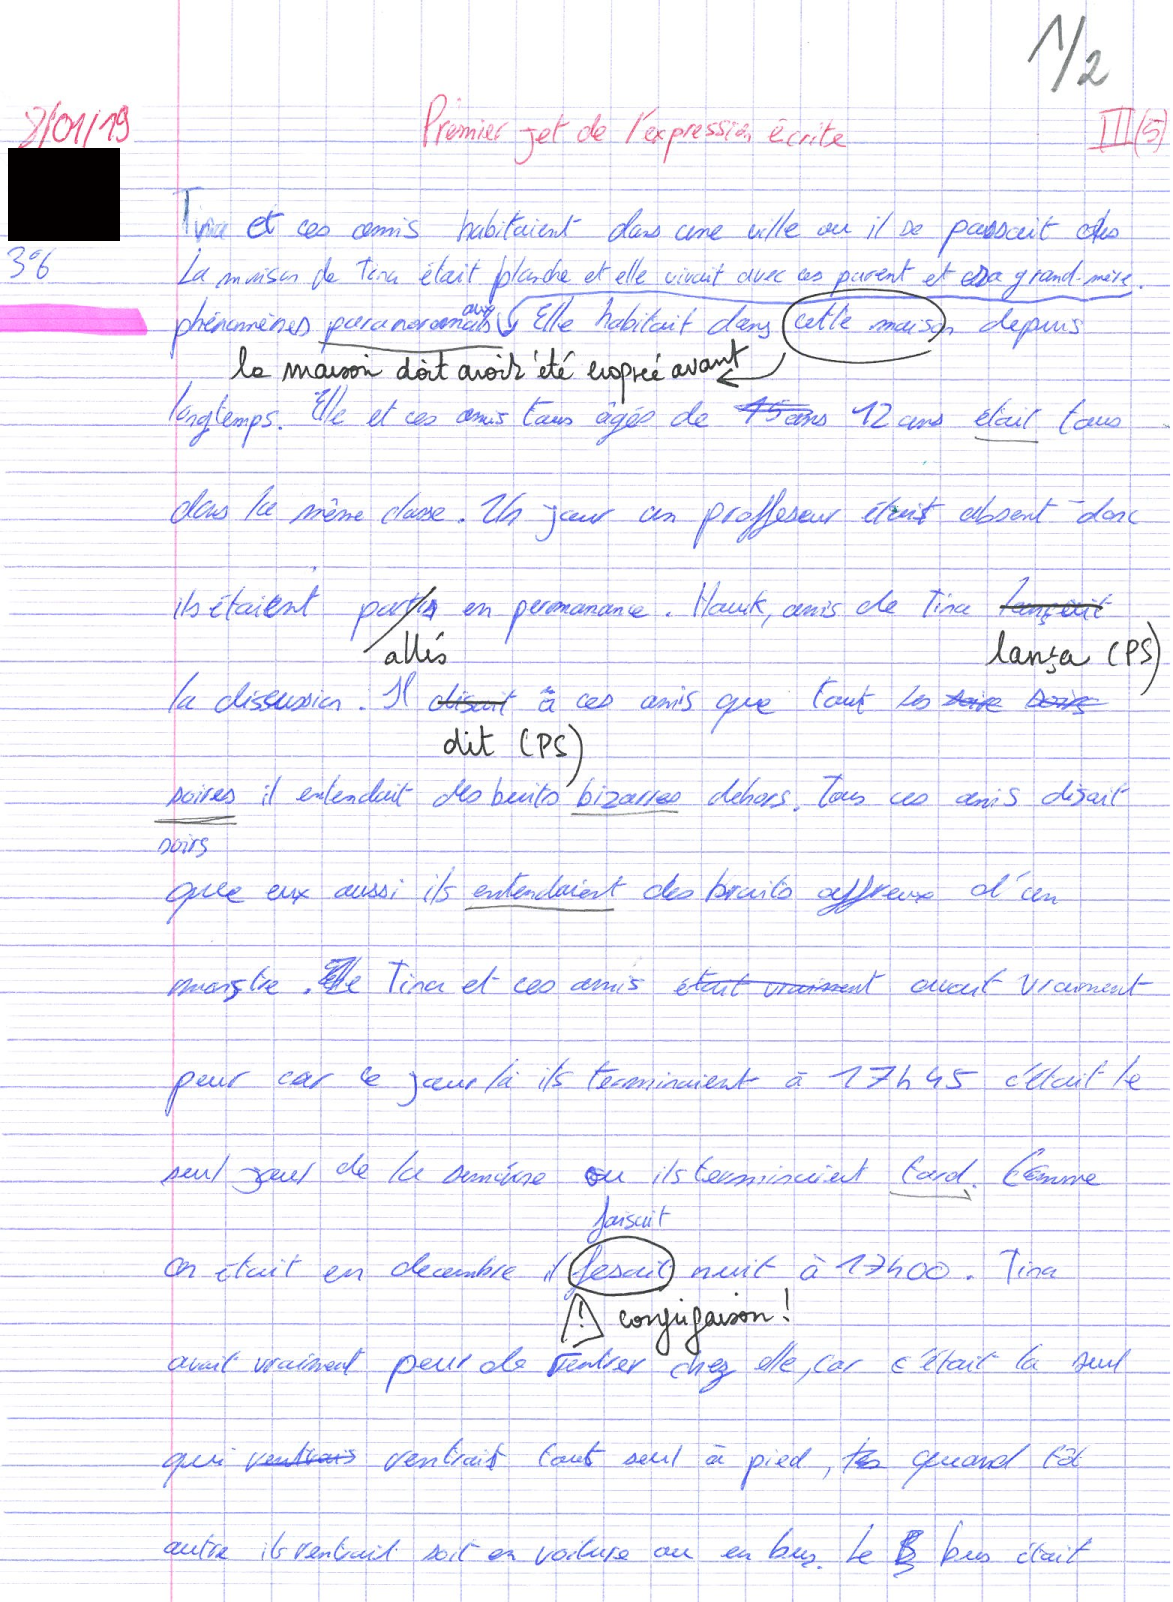 1/2
8/01/19 Premier jet de l'expression écrite III(5)
Tina et ces amis habitaient dans une ville ou il se passait des
3°6
La maison de Tina était blanche et elle vivait avec ces parent et sa grand-mère.
phénomènes paranormaux Elle habitait dans cette maison depuis
la maison doit avoir été évoquée avant
longtemps. Elle et ces amis tous âgés de 15 ans 12 ans était tous
dans la même classe. Un jour un proffeseur était absent donc
ils étaient partis en permanance. Hauk, amis de Tina lançait
allés lança (PS)
la discussion. Il disait à ces amis que tout les soire soirs
dit (PS)
soires il entendait des bruits bizarres dehors. Tous ces amis disait
soirs
que eux aussi ils entendaient des bruits affreux d'un
monstre. Elle Tina et ces amis était vraiment avait vraiment
peur car ce jour là ils terminaient à 17h45 c'était le
seul jour de la semaine ou ils terminaient tard. Comme
faisait
on était en decembre il fesait nuit à 17h00. Tina
conjugaison !
avait vraiment peur de rentrer chez elle, car c'était la seul
qui rentrais rentrait tout seul à pied, quand
autre ils rentrait soit en voiture ou en bus. Le B bus était